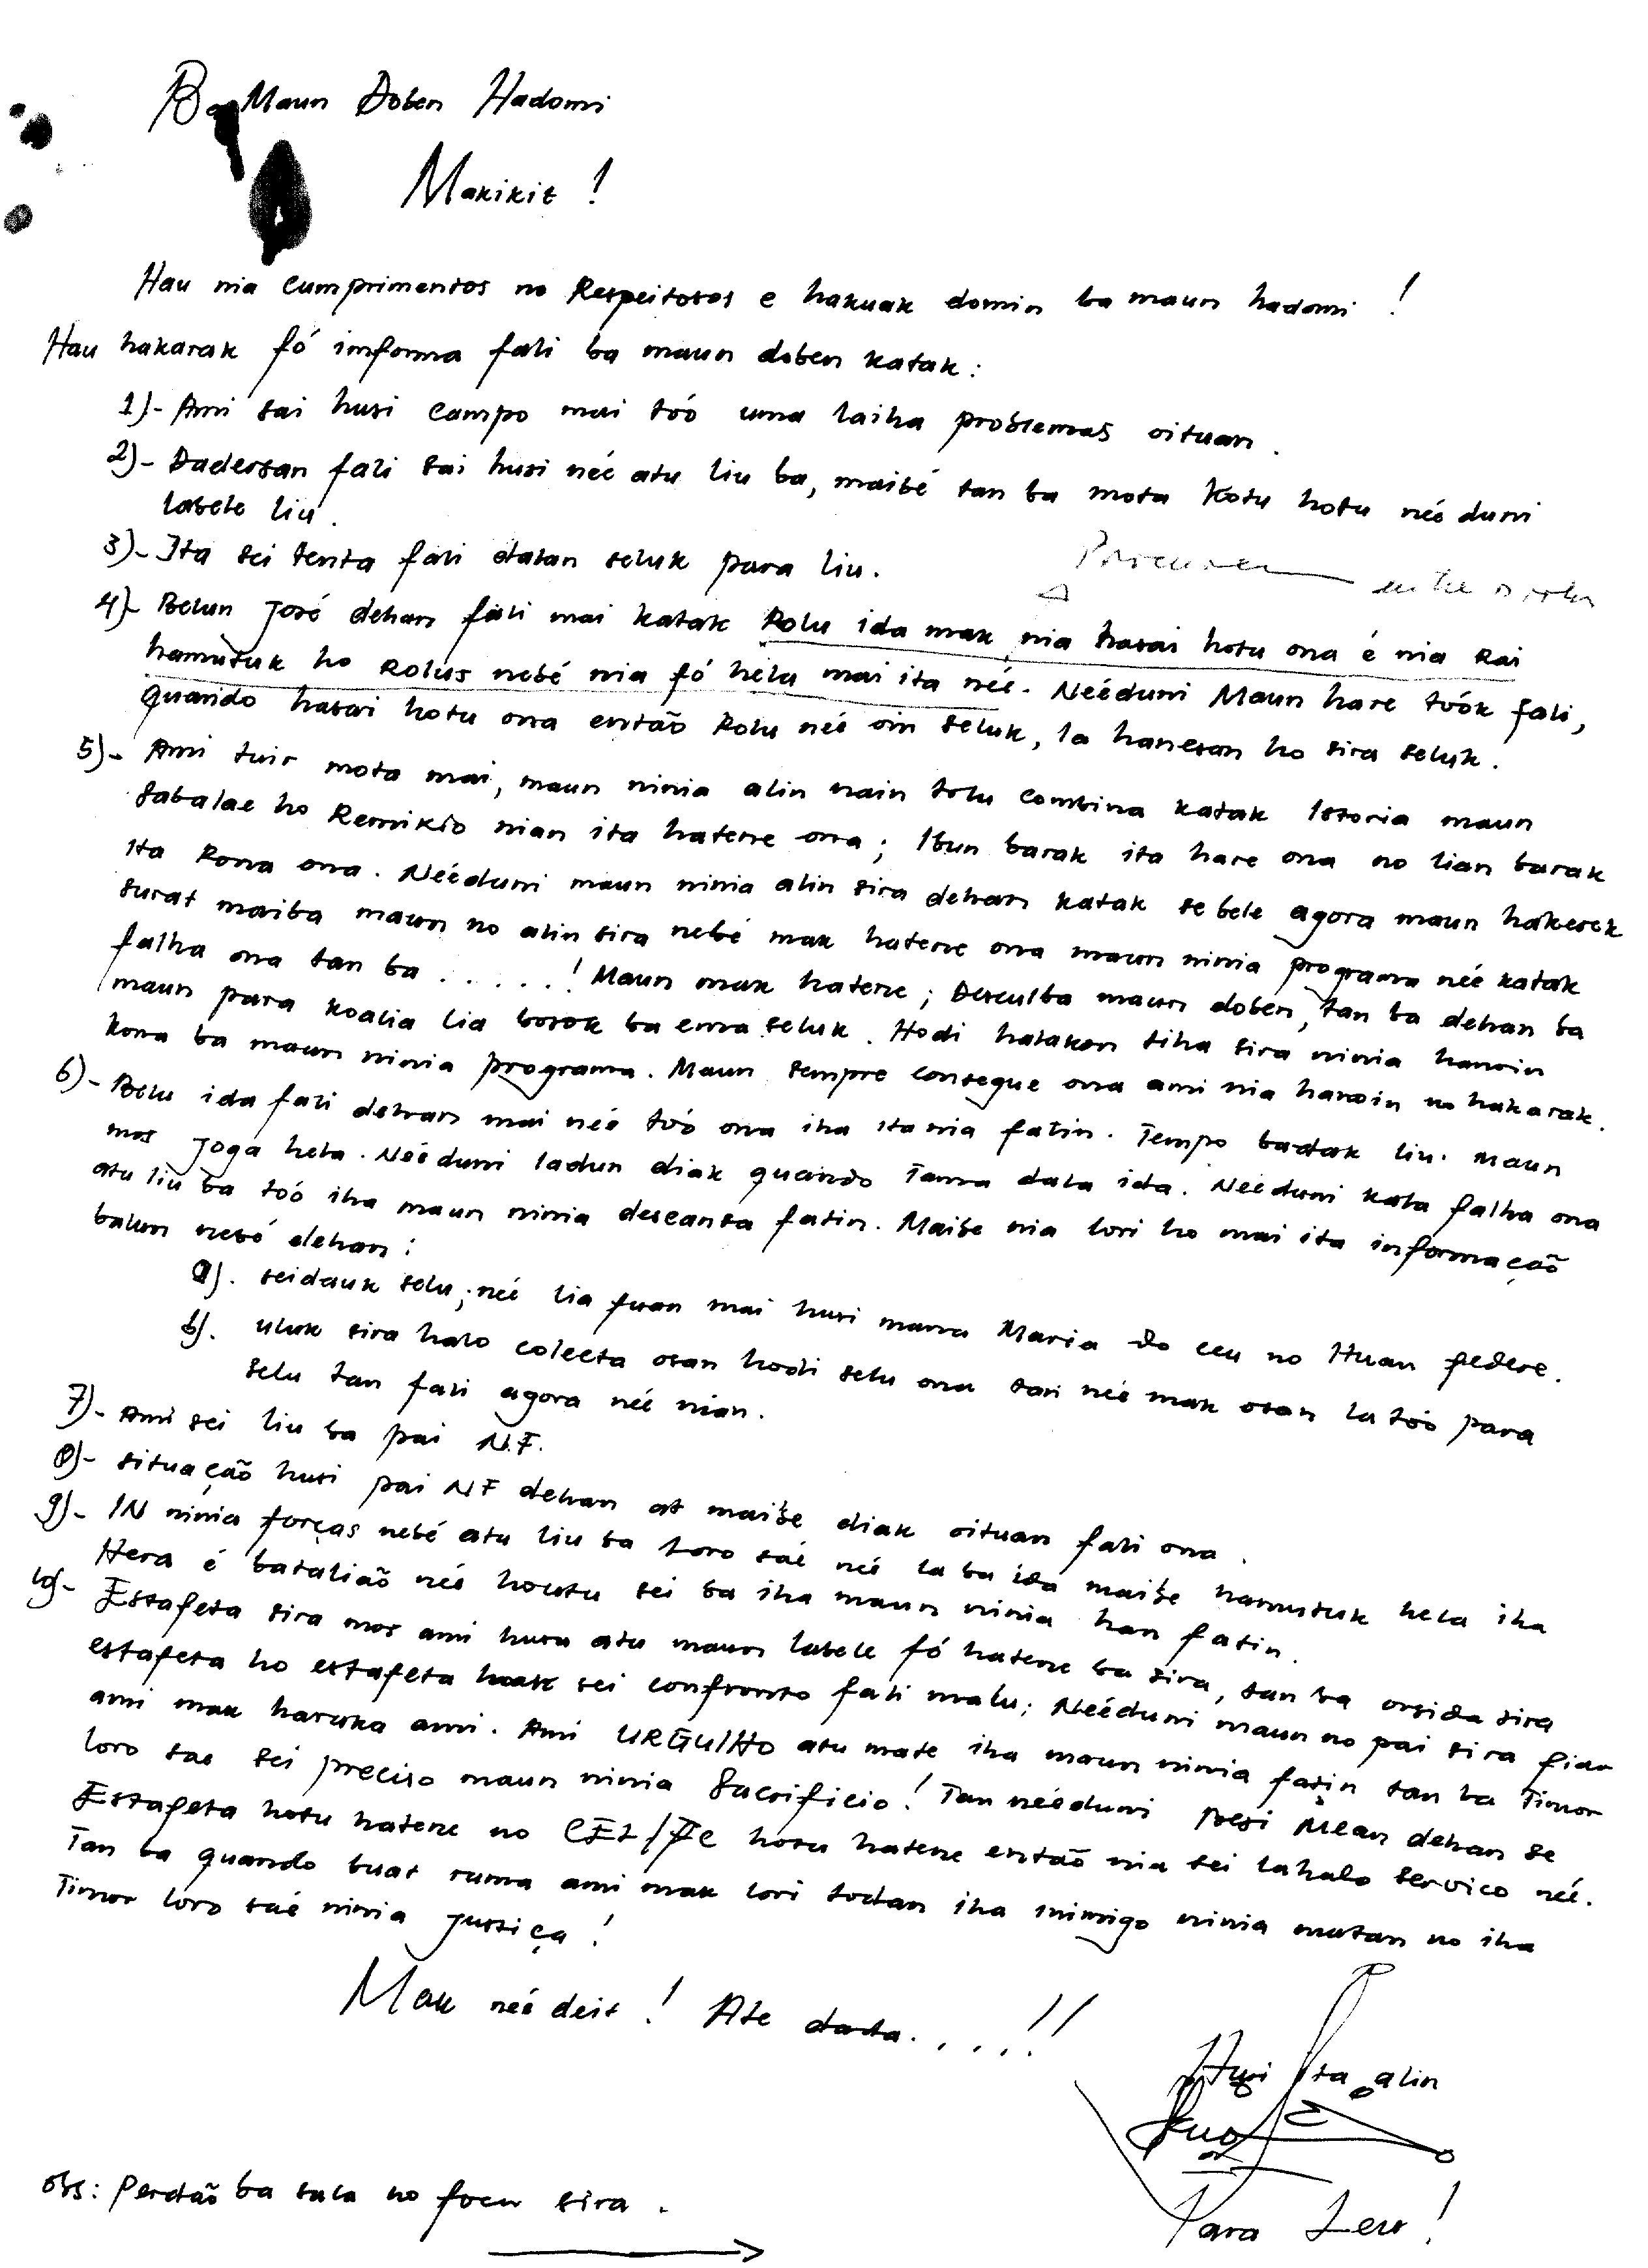 Ba Maun Doben Hadomi
Makikit !
Hau nia cumprimentos no Respeitosos e hakuak domin ba maun hadomi !
Hau hakarak fó imforma fali ba maun doben katak :
1)- Ami sai husi campo mai tóo uma laiha problemas oituan .
2)- Dadersan fali sai husi neé atu liu ba, maibé tan ba mota kotu hotu neé duni
labele liu .
3)- Ita sei tenta fali dalan seluk para liu .
4)- Belun José dehan fali mai katak Rolu ida mak nia hasai hotu ona é nia Rai
hamutuk ho Rolus nebé nia fó hela mai ita neé. Neéduni Maun hare toók fali,
quando hasai hotu ona então Rolu neé oin seluk, la hanesan ho sira seluk .
5)- Ami tuir mota mai, maun ninia alin nain tolu combina katak Istoria maun
Sabalae ho Remikio nian ita hatene ona ; Ibun barak ita hare ona no lian barak
ita Rona ona . Neéduni maun ninia alin sira dehan katak se bele agora maun hakerek
surat maiba maun no alin sira nebé mak hatene ona maun ninia programa neé katak
falha ona tan ba . . . . . . ! Maun mak hatene ; Desculba maun doben, tan ba dehan ba
maun para koalia lia bosok ba ema seluk . Hodi halakon tiha sira ninia hanoin
kona ba maun ninia programa . Maun sempre consegue ona ami nia hanoin no hakarak .
6)- Belu ida fali dehan mai neé tóo ona iha ita nia fatin . Tempo badak liu . maun
mos joga hela . Neéduni ladun diak quando Tama dala ida . Neéduni kala falha ona
atu liu ba tóo iha maun ninia descansa fatin . Maibe nia lori ho mai ita informação
balun nebé dehan :
a). seidauk selu ; neé lia fuan mai husi mana Maria do ceu no Huan federe .
b). uluk sira halo colecta osan hodi selu ona tan neé mak osan la tóo para
selu tan fali agora neé nian .
7)- Ami sei liu ba pai N.F.
8)- situação husi pai NF dehan at maibe diak oituan fali ona .
9)- IN ninia forças nebé atu liu ba Loro saé neé la ba ida maibe hamutuk hela iha
Hera é batalião neé houtu sei ba iha maun ninia han fatin .
10)- Estafeta sira mos ami husu atu maun labele fó hatene ba sira, tan ba orsida sira
estafeta ho estafeta sei confronto fali malu ; Neéduni maun no pai sira fiar
ami mak haruka ami . Ami URGULHO atu mate iha maun ninia fatin tan ba Timor
loro sae sei preciso maun ninia Sacrificio ! Tan neéduni Besi Mean dehan se
Estafeta hotu hatene no CEL/FC hotu hatene então nia sei lahalo servico neé .
Tan ba quando buat ruma ami mak lori todan iha inimigo ninia matan no iha
Timor loro saé ninia justiça !
Mak neé deit ! Ate dada . . . . !!
Husi Ita alin
Para Leu !
obs : Perdão ba sala no foer sira .